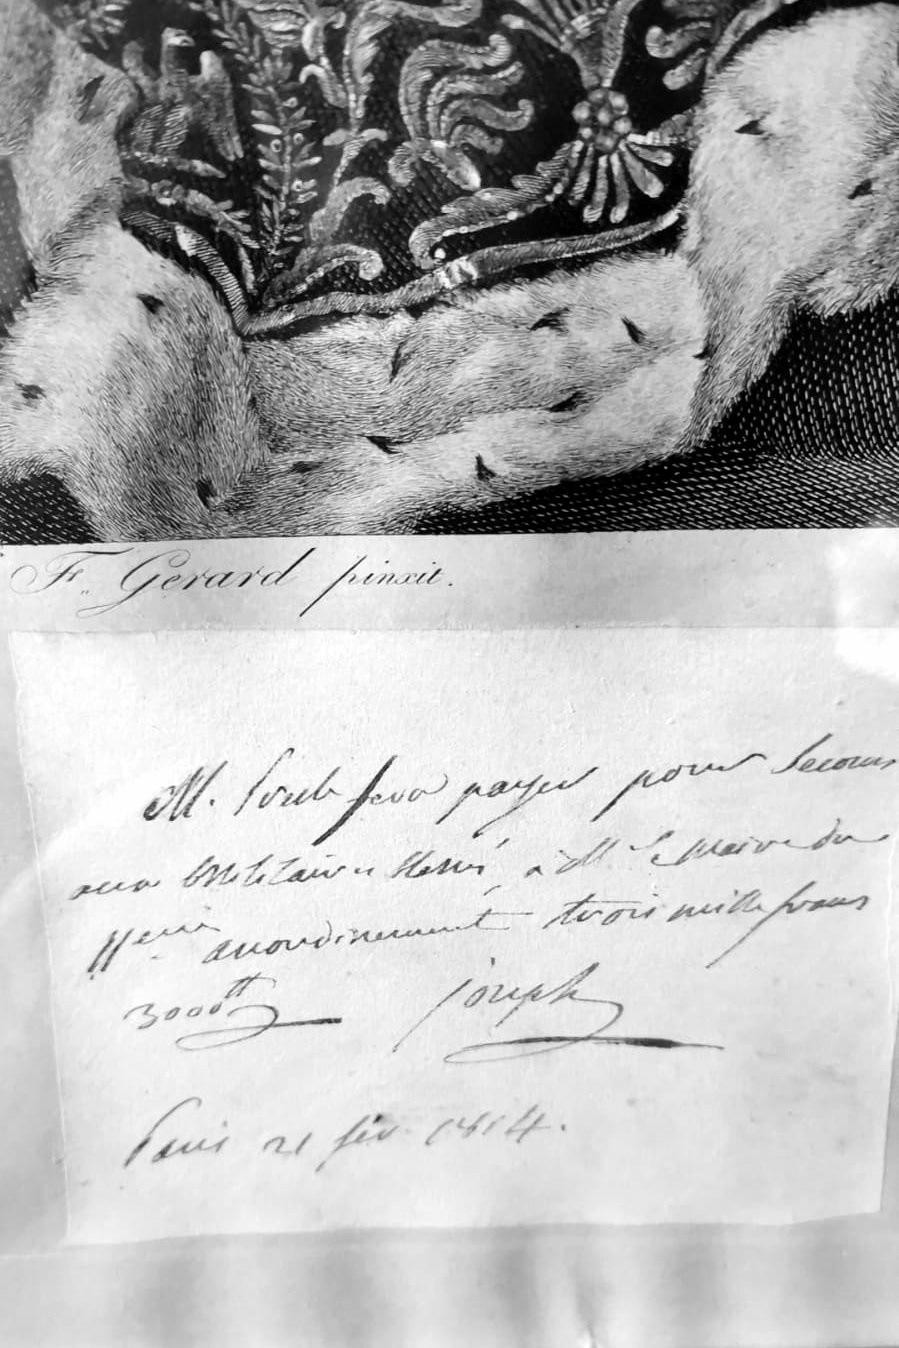 F. Gerard pinxit.
M. fera payer pour Secours
aux Militaires à M. le Maire du
11eme arrondissement trois mille francs
3000tt joseph
Paris 21 fev. 1814.